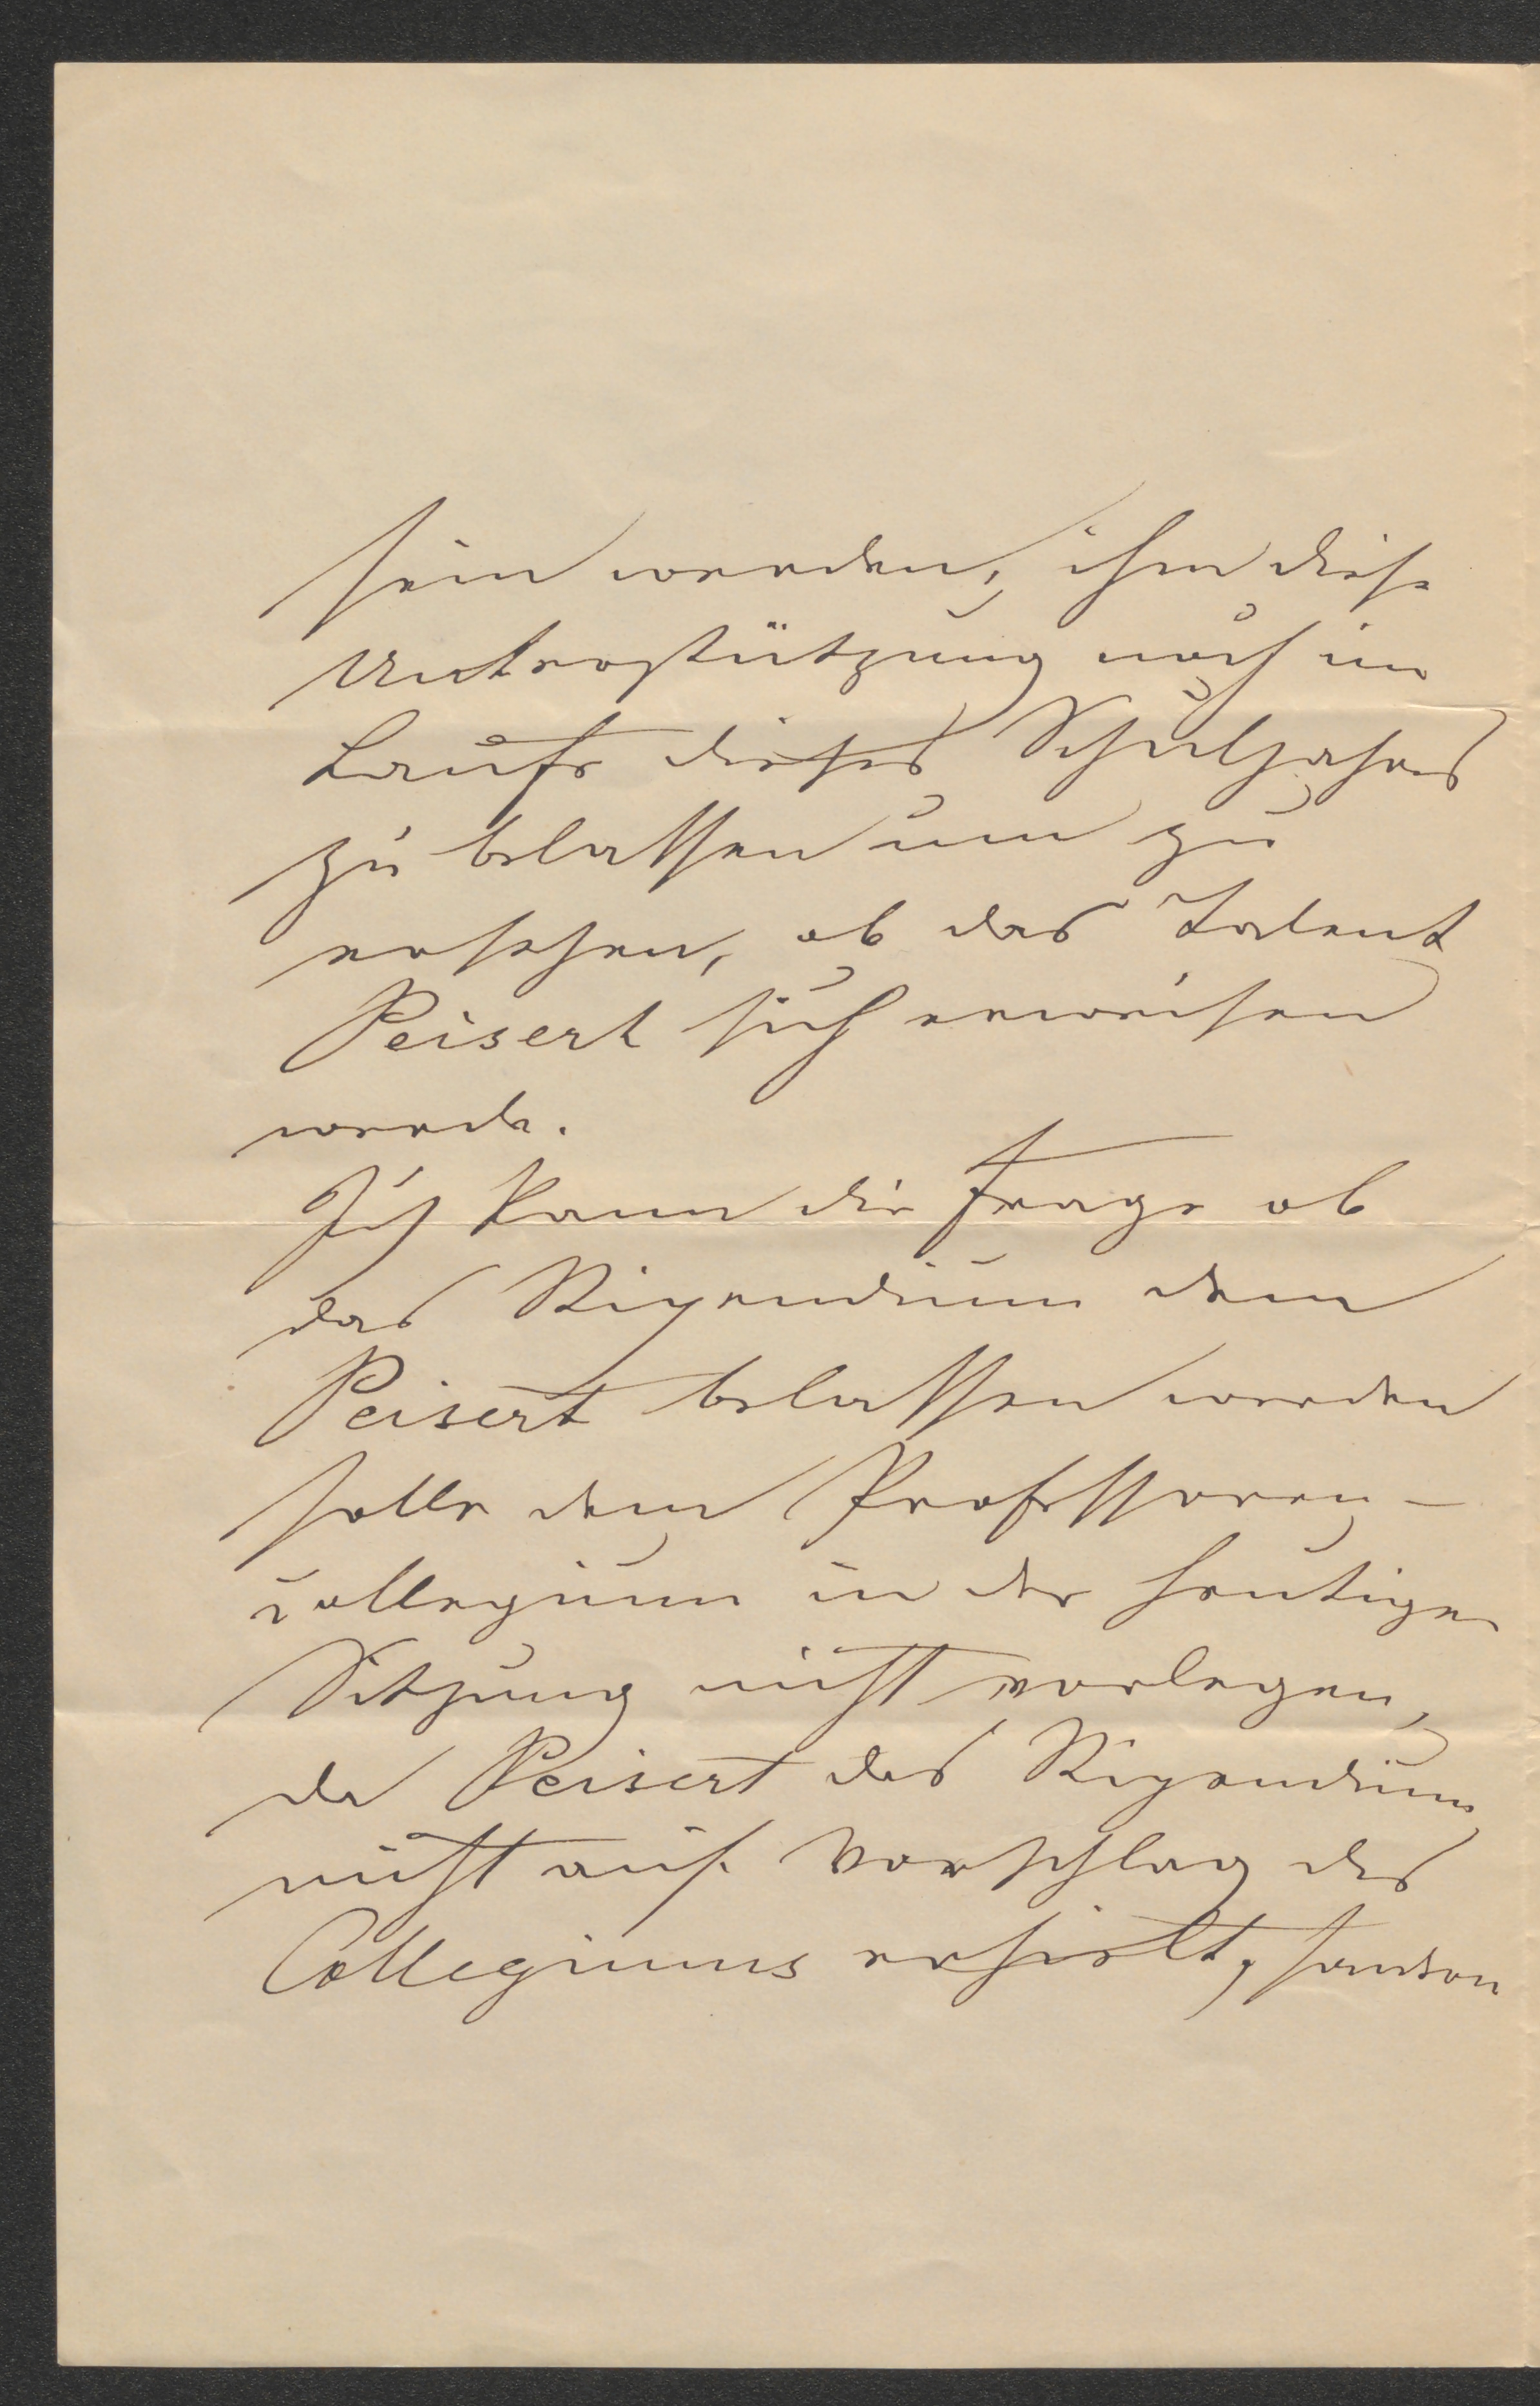 sein werden, ihm diese
Unterstützung noch im
Laufe dieses Schuljahres
zu belassen um zu
ersehen, ob das Talent
Peisert sich erweisen
werde.
Ich kann die Frage ob
das Stipendium dem
Peisert belassen werden
solle dem Professoren-
collegium in der heutigen
Sitzung nicht vorlegen,
da Peisert das Stipendium
nicht auf Vorschlag des
Collegiums erhielt, sondern